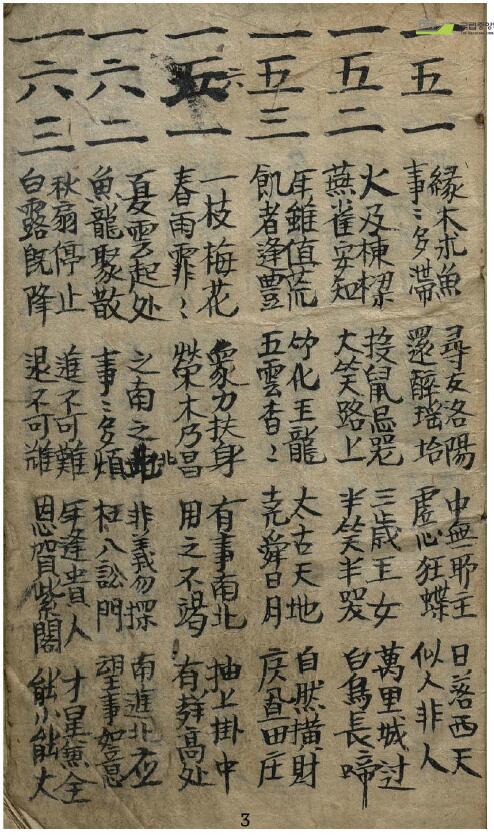 一五一
緣木求魚 尋友洛陽 中無耶主 日落西天
事〻多滯 還醉瑤坮 虛心狂蝶 似人非人
一五二
火及棟樑 投鼠忌器 三歲王女 萬里城过
燕雀安知 大笑路上 半笑半哭 白鳥長啼
一五三
年雖值荒 竹化王龍 太古天地 自然橫財
飢者逢豊 五雲杳〻 堯舜日月 田庄
一六一
一枝梅花 衆力扶身 有事南北 抽上掛中
春雨霏〻 榮木乃昌 用之不竭 有 高处
一六二
夏雲起处 之南之北 非義勿探 南進北在
魚龍聚散 事〻多煩 枉入訟門 望事如意
一六三
秋扇停止 進不可難 年逢貴人 才星兼全
白露旣降 退不可 恩賀紫閣 能小能大
3